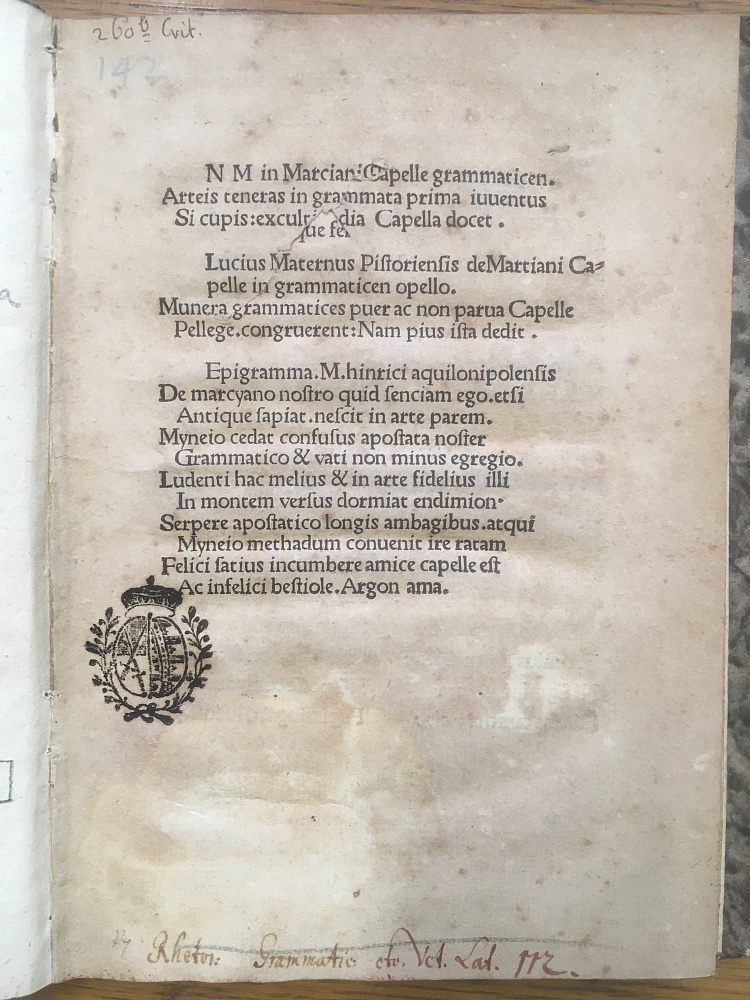 260b Crit.
142
N M in Marciani Capelle grammaticen.
Arteis teneras in grammata prima iuuentus
Si cupis:excult dia Capella docet .
que fe
Lucius Maternus Piſtorienſis deMartiani Ca⸗
pelle in grammaticen opello.
Munera grammatices puer ac non parua Capelle
Pellege.congruerent:Nam pius iſta dedit .
Epigramma.M.hinrici aquilonipolenſis
De marcyano noſtro quid ſenciam ego.etſi
Antique ſapiat.neſcit in arte parem.
Myneio cedat confuſus apoſtata noſter
Grammatico & vati non minus egregio.
Ludenti hac melius & in arte fidelius illi
In montem verſus dormiat endimion·
Serpere apoſtatico longis ambagibus.atqui
Myneio methadum conuenit ire ratam
Felici ſatius incumbere amice capelle eſt
Ac infelici beſtiole.Argon ama.
Rhetor: Grammatic: etc. Vet. Lat. 112.